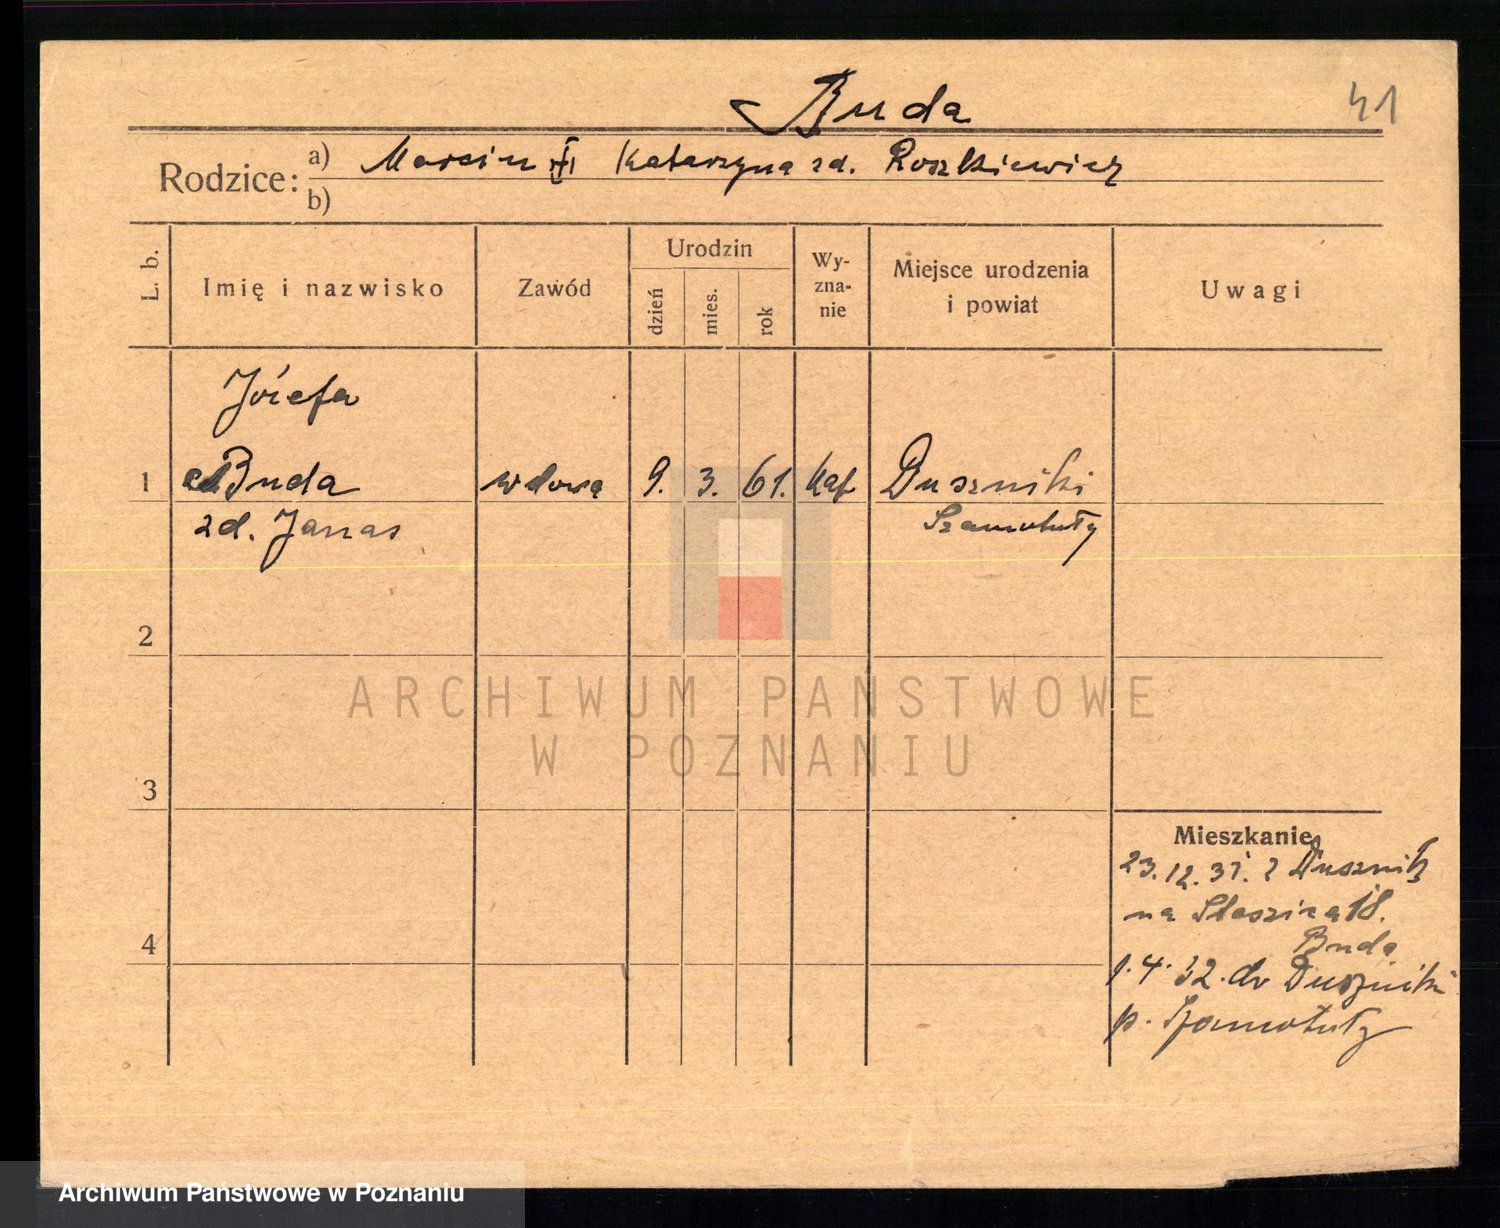 Buda
41
Rodzice:
a) Marcin Katarzyna zd. Roszkiewicz
b)
L. b.
Imię i nazwisko
Zawód
Urodzin
dzień
mies.
rok
Wy-
zna-
nie
Miejsce urodzenia
i powiat
Uwagi
Józefa
1 Buda wdowa 9. 3. 61. Kat Duszniki
zd. Janas Szamotuły
2
ARCHIWUM PAŃSTWOWE
W POZNANIU
3
Mieszkanie
23.12.31. z Dusznik
na Staszica 18.
4
Buda
1.4.32. do Duszniki
p. Szamotuły
Archiwum Państwowe w Poznaniu